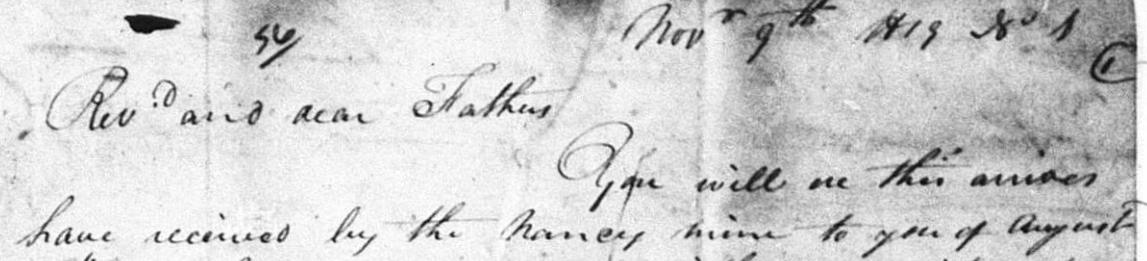 56/
Novr 9th 1819 No 1
Revd and dear Fathers
You will ere this arrives
have received by the Nancy mine to you of August